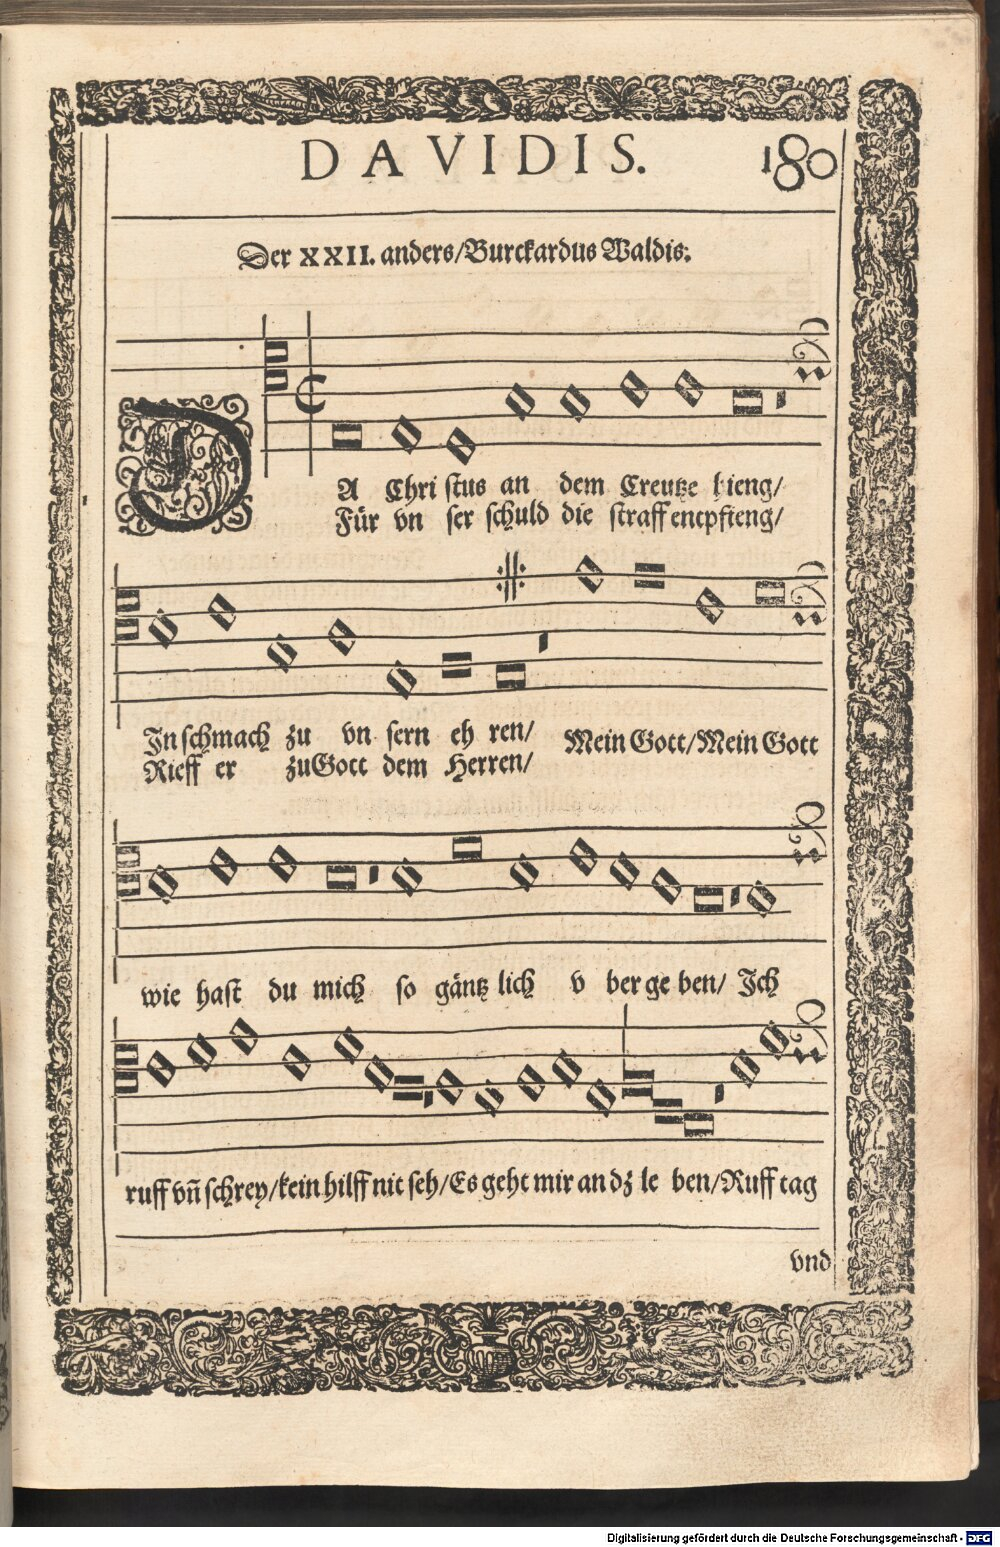 DAVIDIS. 180
Der XXII. anders/Burckardus Waldis:
DA Chri stus an dem Creutze hieng/
Für vn ser schuld die straff entpfieng/
In schmach zu vn sern eh ren/ Mein Gott/Mein Gott
Rieff er zu Gott dem Herren/
wie hast du mich so gäntz lich v ber ge ben/ Ich
ruff vñ schrey/kein hilff nit seh/Es geht mir an dz le ben/Ruff tag
vnd
Digitalisierung gefördert durch die Deutsche Forschungsgemeinschaft - DFG